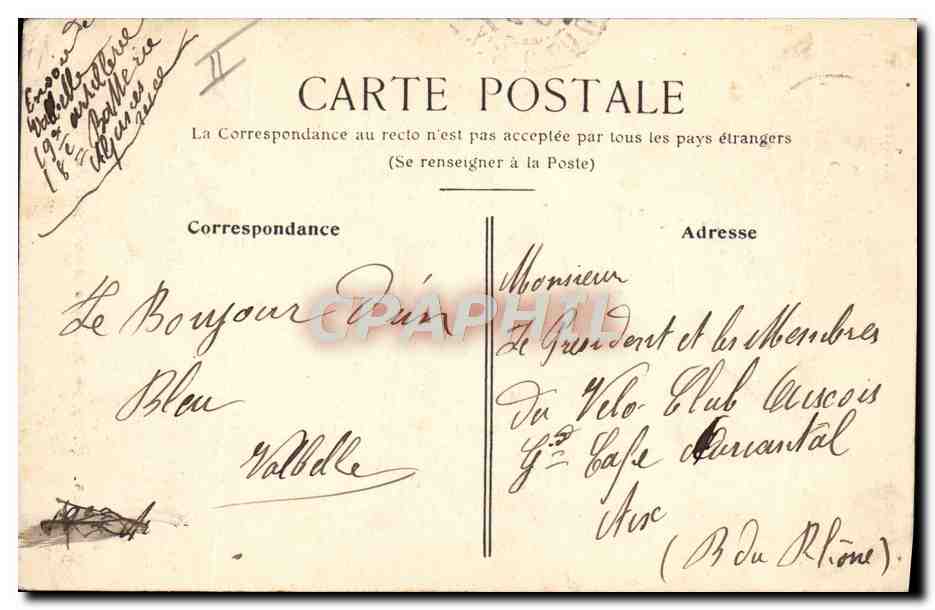 Envoi de
Valbelle
19e artillerie
18e Batterie
Nîmes
II
CARTE POSTALE
La Correspondance au recto n'est pas acceptée par tous les pays étrangers
(Se renseigner à la Poste)
Correspondance
Le Bonjour d'un
Bleu
Valbelle
Adresse
Monsieur
Le President et les Membres
du Velo-Club Aixois
Gd Cafe
Aix
(B du Rhône).
CPAPHIL